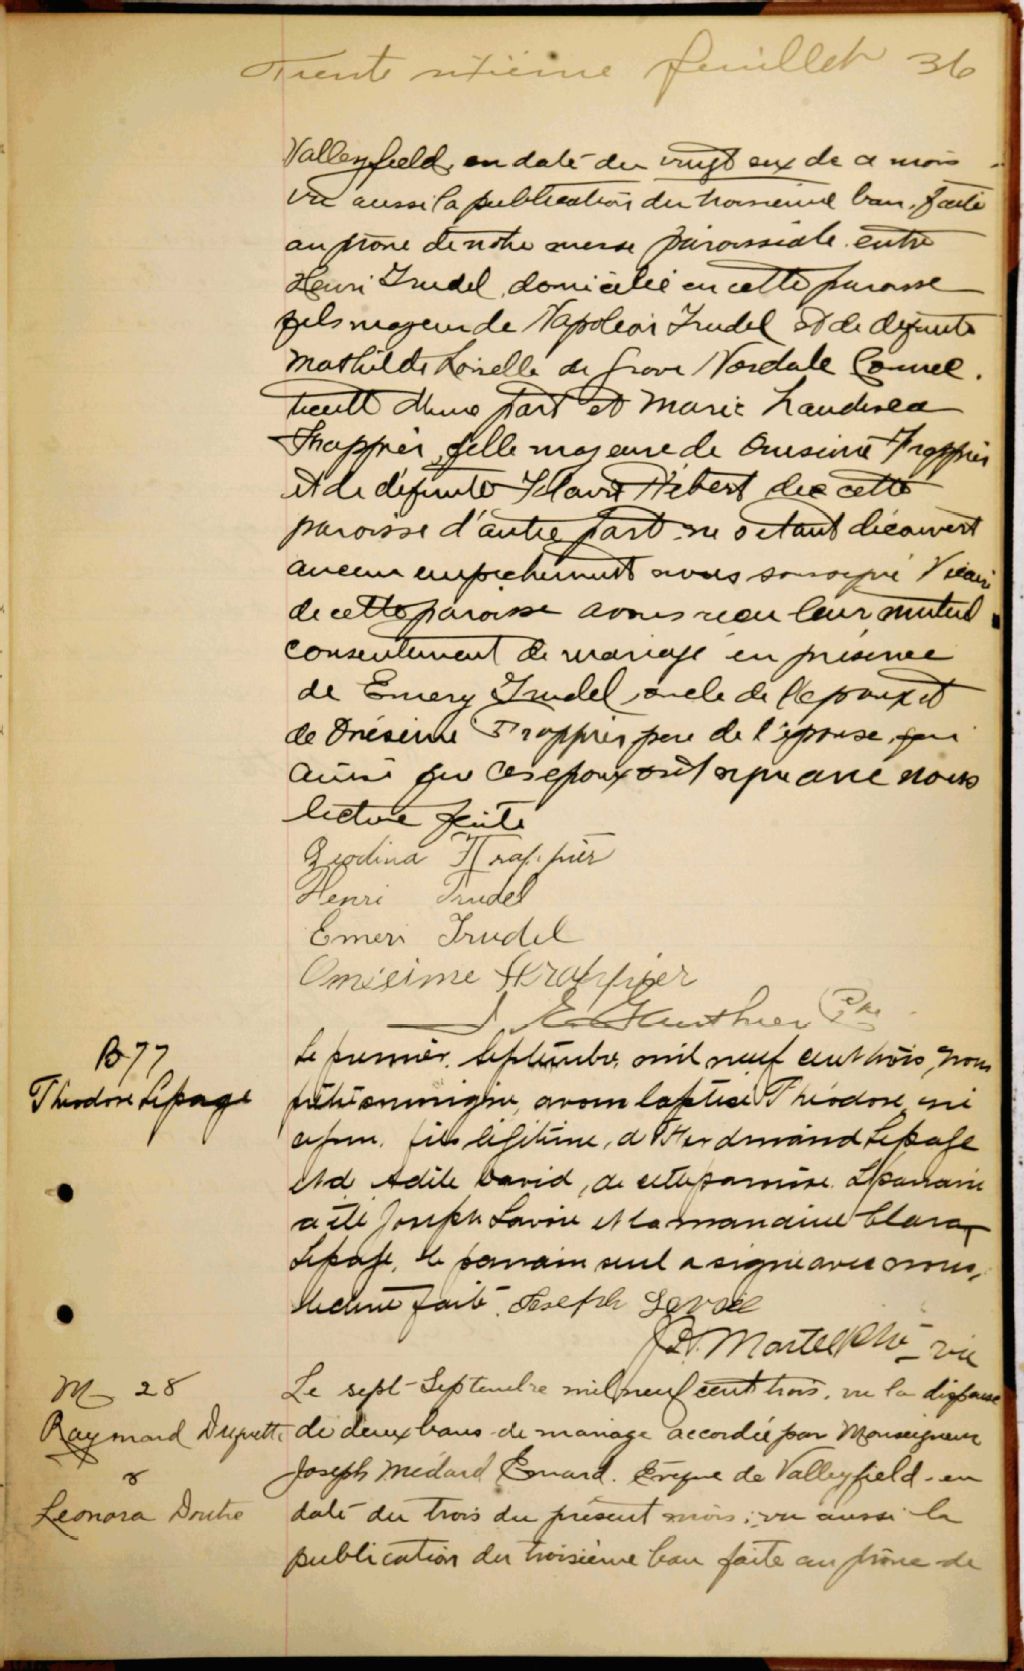 Trente sixième feuillet 36
Valleyfield, en date du vingt six de ce mois
vu aussi la publication du troisieme ban, faite
au prone de notre messe paroissiale entre
Henri Trudel, domicilié en cette paroisse
fils majeur de Napoléon Trudel et de défunte
Mathilde Loiselle de Grove Nordale Connec.
ticutt d'une part et Marie
Frappier, fille majeure de Onesime Frappier
et de défunte Hébert de cette
paroisse d'autre part ne s'etant découvert
aucun empechement nous soussigné Vicaire
de cette paroisse avons recu leur mutuel
consentement de mariage en présence
de Emery Trudel, oncle de l'epoux et
de Onésime Frappier pere de l'épouse qui
ainsi que ces epoux ont signé avec nous
lecture faite
Frappier
Henri Trudel
Emeri Trudel
Onésime Frappier
J. E. Gauthier Ptre
B 77
Théodore Lepage
Le premier Septembre mil neuf cent trois, nous
prêtre soussigné, avons baptisé Théodore, né
fils légitime, d Ferdinand Lepage
et d Adèle David, de cette paroisse. Le parrain
a été Joseph Lavoie et la marraine Clara
Lepage, le parrain seul a signé avec nous,
lecture faite. Joseph
Martel Ptre vic
M 28
Raymond Duquette
&
Leonora Doutre
Le sept Septembre mil neuf cent trois, vu la dispense
de deux bans de mariage accordée par Monseigneur
Joseph Médard Emard. Évêque de Valleyfield en
date du trois du présent mois; vu aussi la
publication du troisième ban faite au prône de